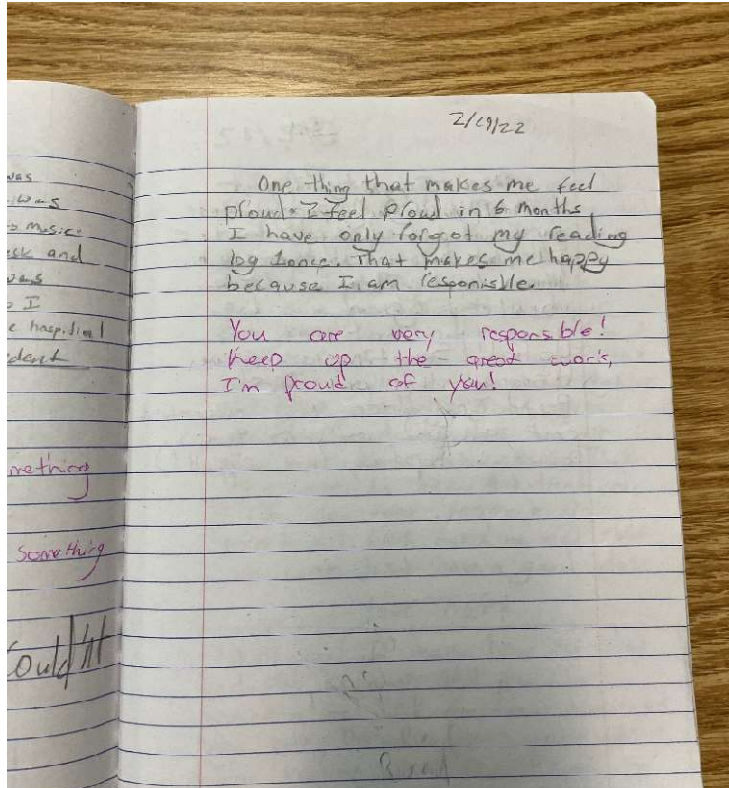 was
was
music
and
was
I
hospitial
mething
something
Could'nt
2/19/22
One thing that makes me feel
proud. I feel proud in 6 months
I have only forgot my reading
log 1once. That makes me happy
because I am responisble.
You are very responsible!
Keep up the great work,
I'm proud of you!